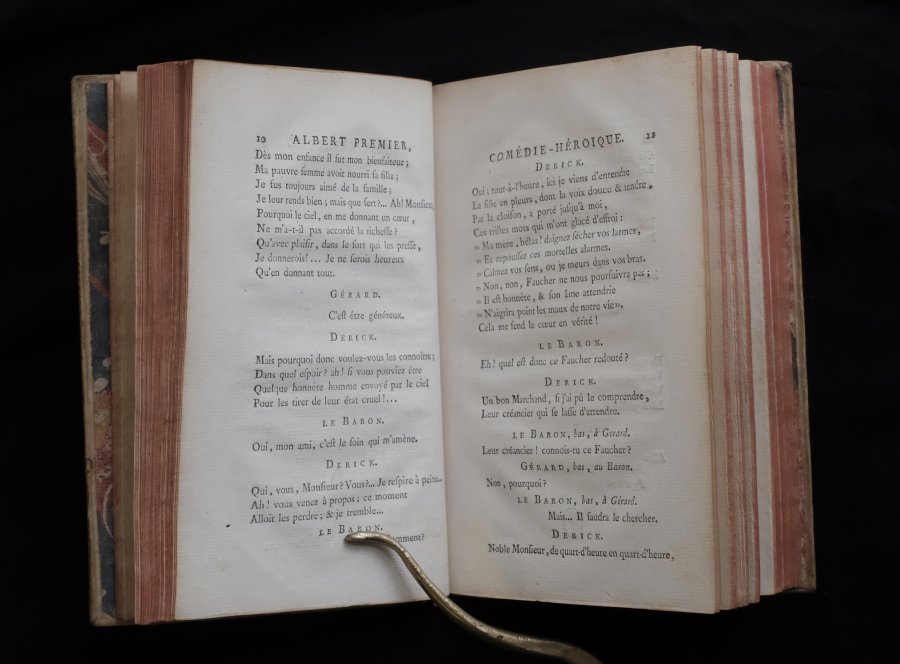 10 ALBERT PREMIER,
Dès mon enfance il fut mon bienfaiteur;
Ma pauvre femme avoit nourri sa fille;
Je fus toujours aimé de la famille;
Je leur rends bien; mais que sert?... Ah! Monsieur,
Pourquoi le ciel, en me donnant un cœur,
Ne m'a-t-il pas accordé la richesse?
Qu'avec plaisir, dans le sort qui les presse,
Je donnerois!... Je ne serois heureux
Qu'en donnant tout.
GÉRARD.
C'est être généreux.
DERICK.
Mais pourquoi donc voulez-vous les connoître;
Dans quel espoir? ah! si vous pouviez être
Quelque honnête homme envoyé par le ciel
Pour les tirer de leur état cruel!...
LE BARON.
Oui, mon ami, c'est le soin qui m'amène.
DERICK.
Qui, vous, Monsieur? Vous?... Je respire à peine...
Ah! vous venez à propos; ce moment
Alloit les perdre; & je tremble...
LE BARON.
omment?
COMÉDIE-HÉROIQUE. 11
DERICK.
Oui; tout-à-l'heure, ici je viens d'entendre
La fille en pleurs, dont la voix douce & tendre,
Par la cloison, a porté jusqu'à moi,
Ces tristes mots qui m'ont glacé d'effroi:
» Ma mere, hélas! daignez sécher vos larmes,
» Et repoussez ces mortelles alarmes.
» Calmez vos sens, ou je meurs dans vos bras.
» Non, non, Faucher ne nous poursuivra pas;
» Il est honnête, & son âme attendrie
» N'aigrira point les maux de notre vie ».
Cela me fend le cœur en vérité!
LE BARON.
Eh! quel est donc ce Faucher redouté?
DERICK.
Un bon Marchand, si j'ai pû le comprendre,
Leur créancier qui se lasse d'attendre.
LE BARON, bas, à Gerard.
Leur créancier! connois-tu ce Faucher?
GÉRARD, bas, au Baron.
Non, pourquoi?
LE BARON, bas, à Gérard.
Mais... Il faudra le chercher.
DERICK.
Noble Monsieur, de quart-d'heure en quart-d'heure,